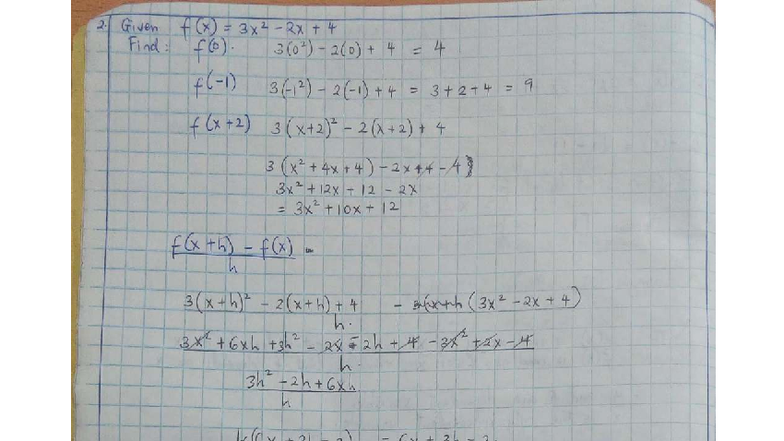 2. Given f(x) = 3x² - 2x + 4
Find: f(0). 3(0²) - 2(0) + 4 = 4
f(-1) 3(-1²) - 2(-1) + 4 = 3 + 2 + 4 = 9
f(x+2) 3(x+2)² - 2(x+2) + 4
3(x² + 4x + 4) - 2x + 4 - 4
3x² + 12x + 12 - 2x
= 3x² + 10x + 12
f(x+h) - f(x) =
h
3(x+h)² - 2(x+h) + 4 - (3x² - 2x + 4)
h.
3x² + 6xh + 3h² - 2x - 2h + 4 - 3x² + 2x - 4
h.
3h² - 2h + 6xh
h